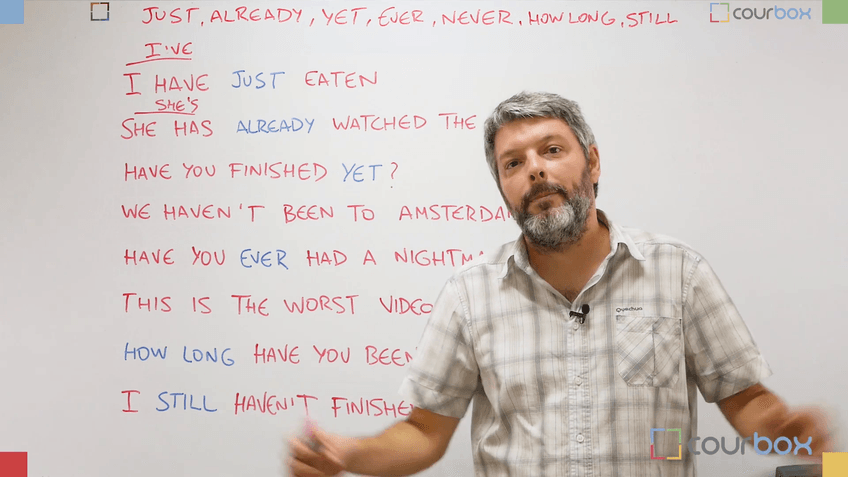 JUST, ALREADY, YET, EVER, NEVER, HOW LONG, STILL
courbox
I'VE
I HAVE JUST EATEN
SHE'S
SHE HAS ALREADY WATCHED THE
HAVE YOU FINISHED YET?
WE HAVEN'T BEEN TO AMSTERDAM
HAVE YOU EVER HAD A
THIS IS THE WORST VIDEO
HOW LONG HAVE YOU BEEN
I STILL HAVEN'T
courbox